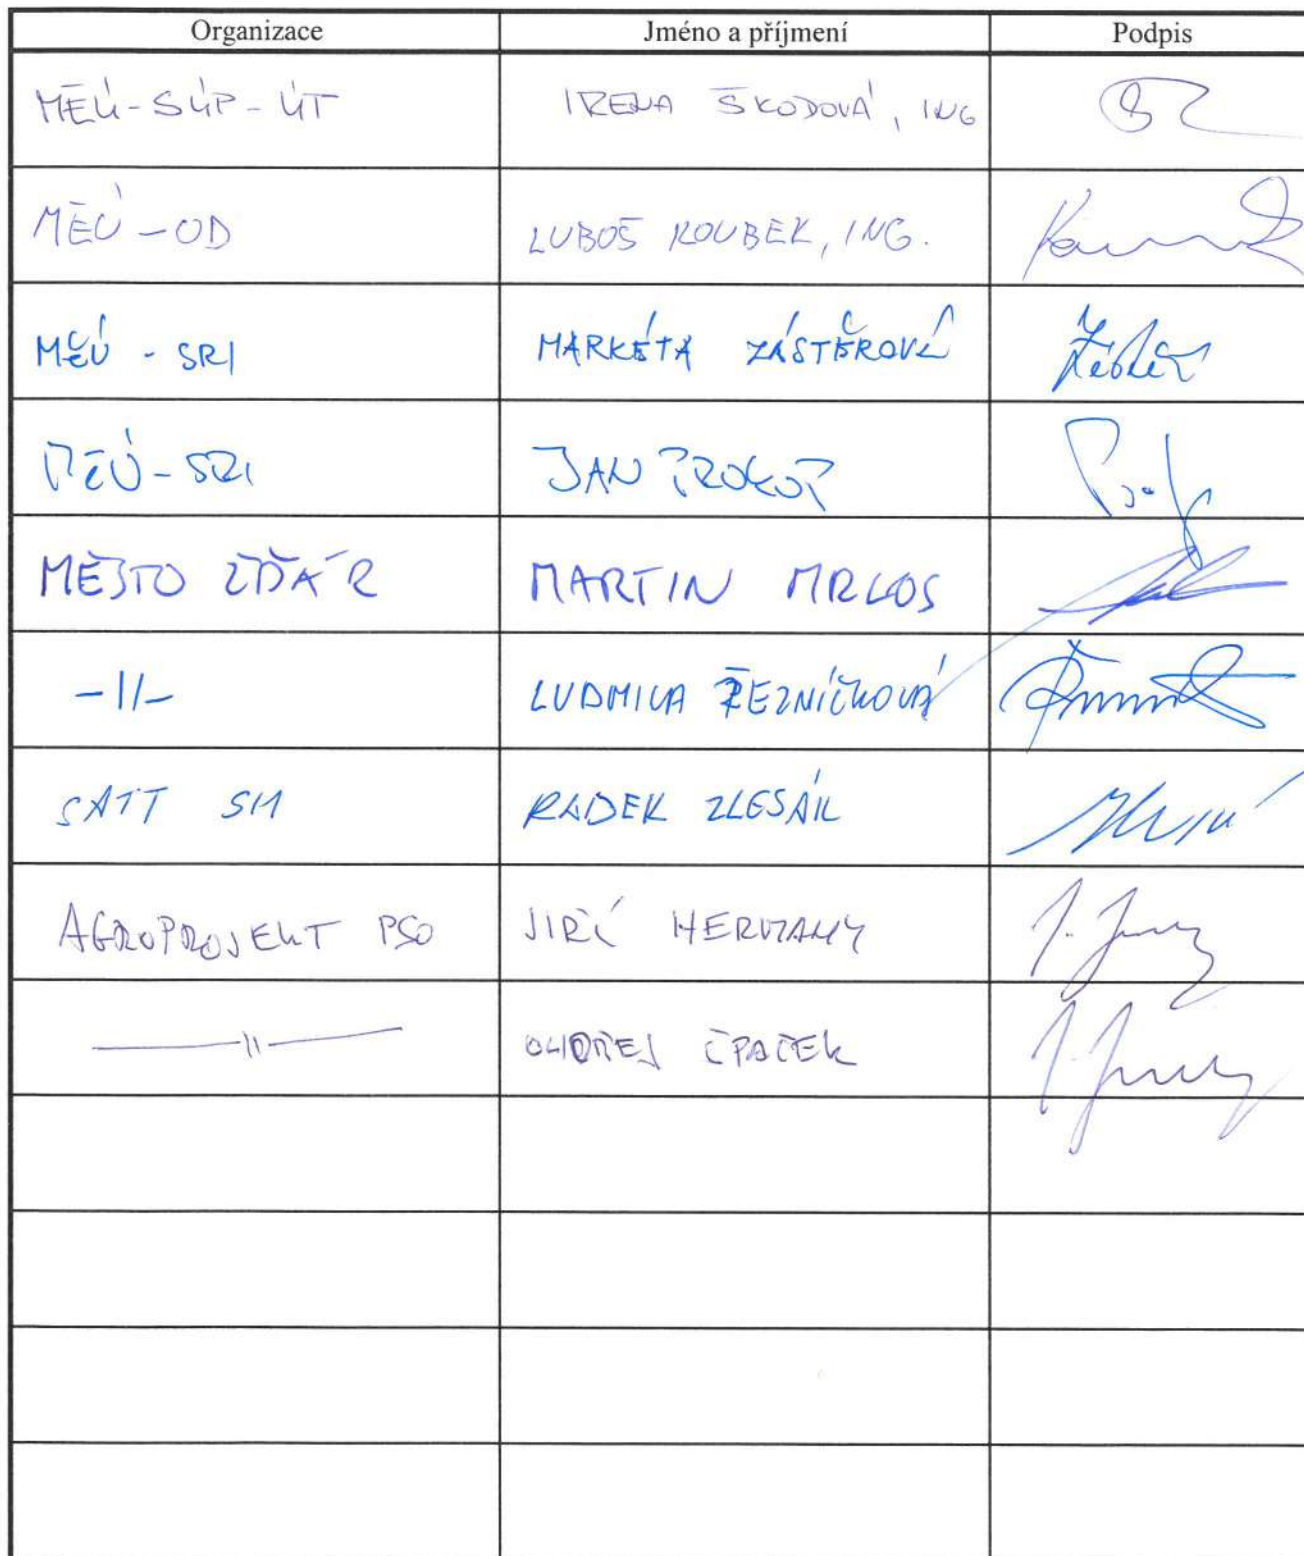 Organizace Jméno a příjmení Podpis
MĚÚ-SÚP-ÚT IRENA ŠKODOVÁ, ING
MĚÚ-OD LUBOŠ ROUBEK, ING.
MĚÚ - SRI MARKÉTA ZÁSTĚROVÁ
MĚÚ-SRI JAN PROKOP
MĚSTO ŽĎÁR MARTIN MRKOS
-11- LUDMILA ŘEZNÍČKOVÁ
SATT SM RADEK ZLESÁK
AGROPROJEKT PSO JIŘÍ HERMANY
-11- ONDŘEJ ČPAČEK